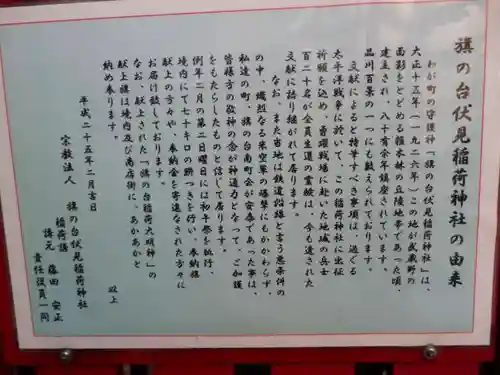 旗の台伏見稲荷神社の由来
わが町の守護神「旗の台伏見稲荷神社」は、
大正十五年(一九二六年)この地が武蔵野の
面影をとどめる雑木林の丘陵地帯であった頃、
建立され、八十有余年鎮座されています。
品川百景の一つにも数えられております。
文献によると特筆すべき事項は、過ぐる
太平洋戦争に於いて、この稲荷神社に出征
祈願を込め、勇躍戦場に赴いた地域の兵士
百二十名が全員生還の霊験は、今も遺された
文献に語り継がれて居ります。
なお、また当地は鉄道沿線と言う悪条件の
の中、熾烈なる米空軍の爆撃にもかかわらず、
私達の町、旗の台南町会が安泰であった事は、
皆様方の敬神の念が神通力となって、ご加護
をもたらしたものと信じて居ります。
例年二月の第二日曜日には初午祭を執行、
境内にて七十キロの餅つきを行い、奉納旗
献上の方々や、奉納金を寄進なされた方々に
お届け致しております。
なお、献上された「旗の台稲荷大明神」の
献上旗は境内及び商店街に、あかあかと
納め参ります。
以上
平成二十五年二月吉日
宗教法人 旗の台伏見稲荷神社
稲荷講 責任役員一同
講元 藤田 安正